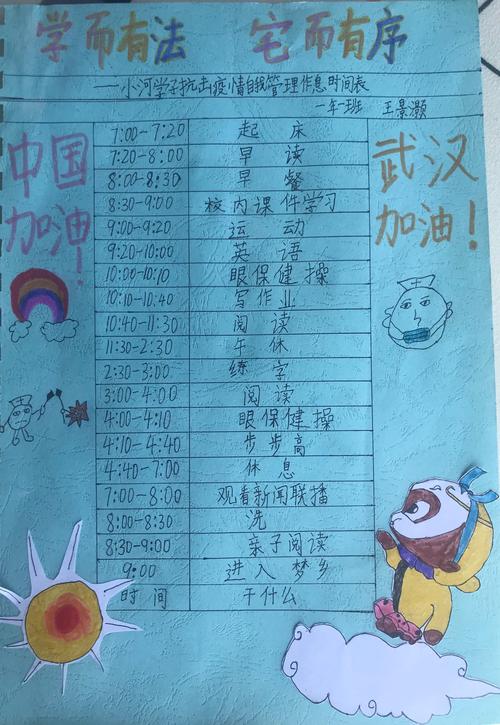 学而有法 宅而有序
——小河学子抗击疫情自我管理作息时间表
一年1班 王景灏
中国
加油!
武汉
加油!
7:00-7:20 起床
7:20-8:00 早读
8:00-8:30 早餐
8:30-9:00 校内课件学习
9:00-9:20 运动
9:20-10:00 英语
10:00-10:10 眼保健操
10:10-10:40 写作业
10:40-11:30 阅读
11:30-2:30 午休
2:30-3:00 练字
3:00-4:00 阅读
4:00-4:10 眼保健操
4:10-4:40 步步高
4:40-7:00 休息
7:00-8:00 观看新闻联播
8:00-8:30 洗
8:30-9:00 亲子阅读
9:00 进入梦乡
时间 干什么